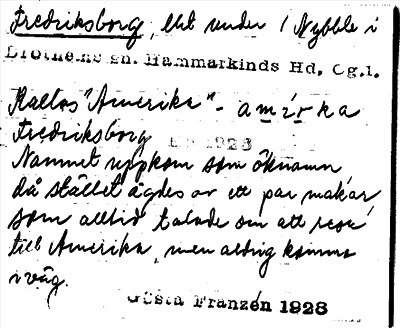 Fredriksborg, lht under 1 Nybble i
Drothems sn. Hammarkinds Hd, Ög.l.
Kallas "Amerika" - amérka
Fredriksborg
1928
Namnet uppkom som öknamn
då stället ägdes av ett par makar
som alltid talade om att resa
till Amerika, men aldrig kommo
iväg.
Gösta Franzén 1928